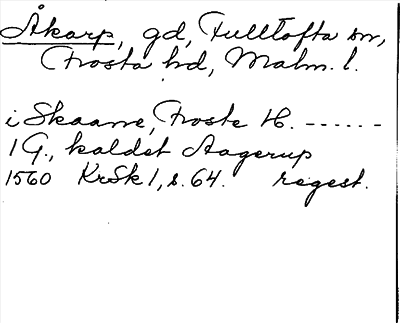 Åkarp, gd, Fulltofta sn,
Frosta hd, Malm. l.
i Skaane, Froste H. ------
1 G., kaldet Aagerup
1560 KrSk 1, s. 64. regest.